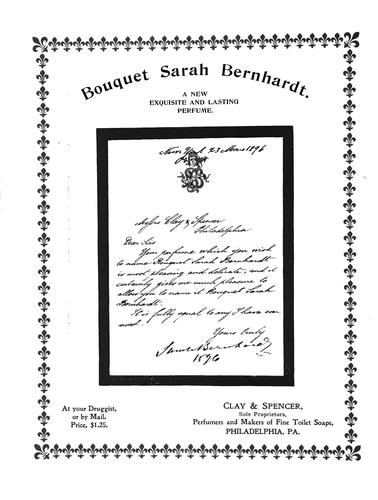 Bouquet Sarah Bernhardt.
A NEW
EXQUISITE AND LASTING
PERFUME.
New York 23 Mars 1896
Messrs Clay & Spencer
Philadelphia
Dear Sirs
Your perfume which you wish
to name Bouquet Sarah Bernhardt
is most pleasing and delicate, and it
certainly gives me much pleasure to
allow you to name it Bouquet Sarah
Bernhardt.
It is fully equal to any I have ever
used.
Yours truly
Sarah Bernhardt
1896
At your Druggist,
or by Mail.
Price, $1.25.
CLAY & SPENCER,
Sole Proprietors,
Perfumers and Makers of Fine Toilet Soaps,
PHILADELPHIA, PA.